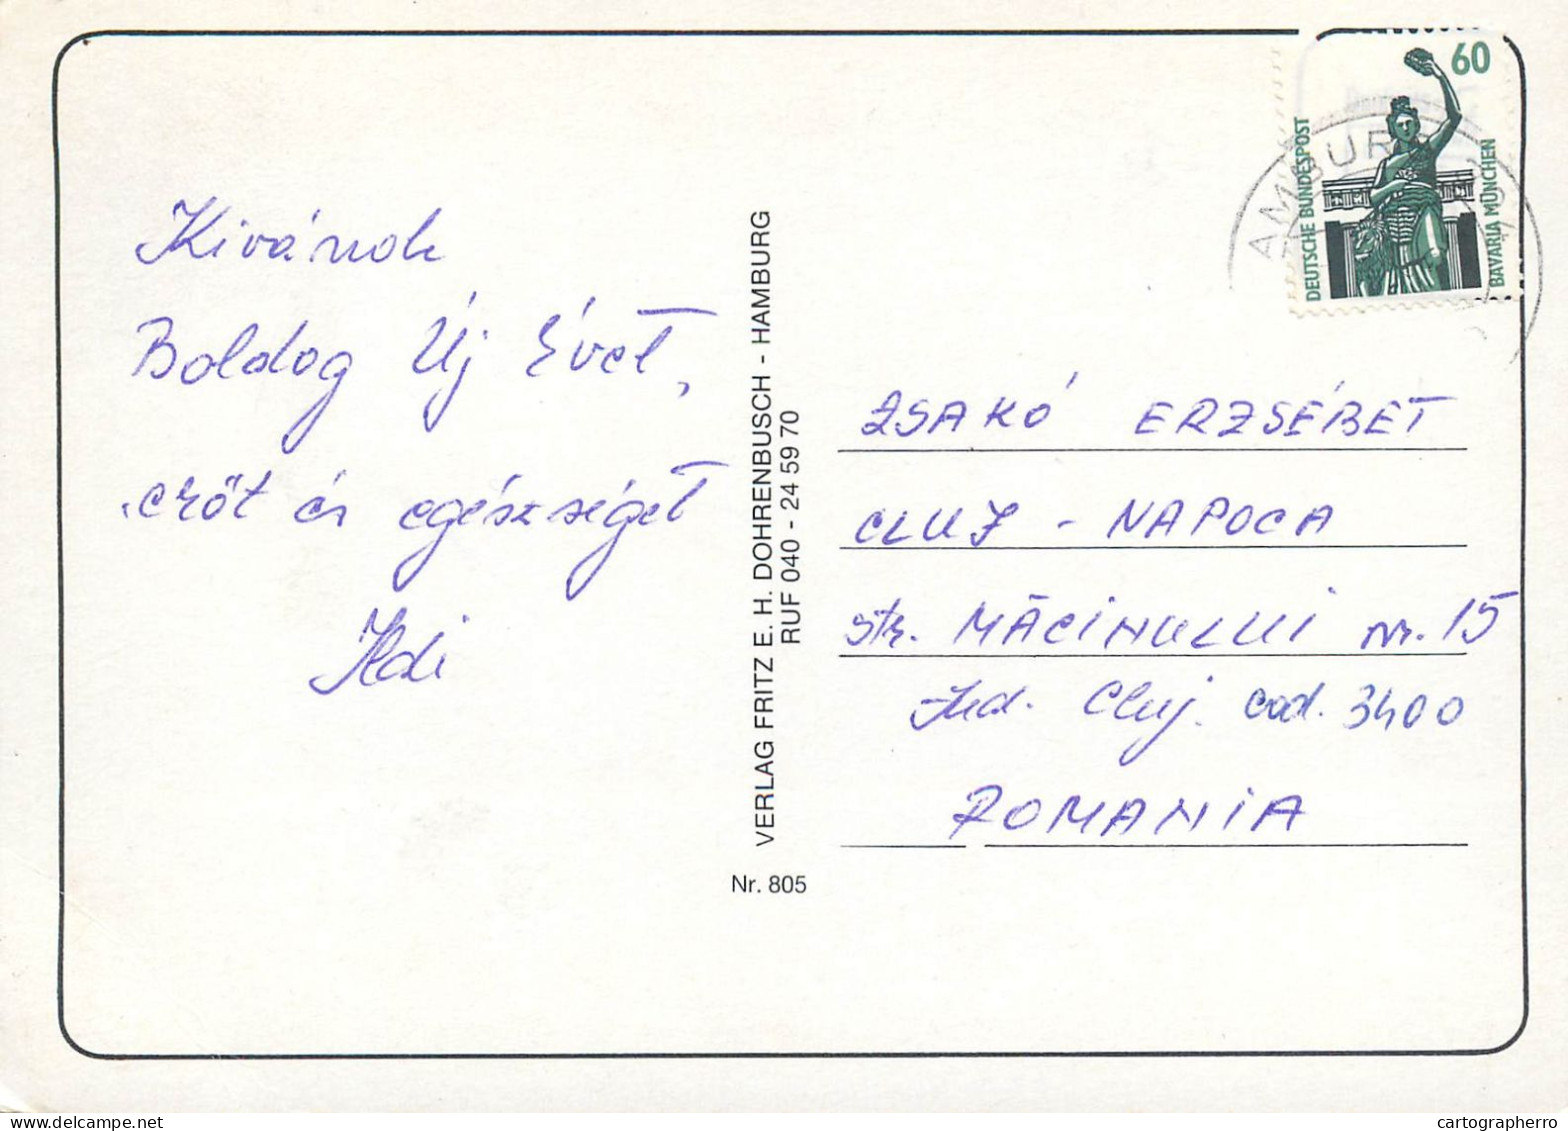 Kivánok
Boldog Új Évet,
erőt és egészséget
Ildi
VERLAG FRITZ E. H. DOHRENBUSCH - HAMBURG
RUF 040 - 24 59 70
Nr. 805
60
DEUTSCHE BUNDESPOST
BAVARIA MÜNCHEN
AMBURG
ZSAKÓ ERZSÉBET
CLUJ - NAPOCA
str. MĂCINULUI nr. 15
Jud. Cluj. cod. 3400
ROMANIA
cartographerro